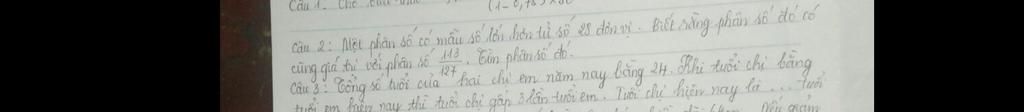 Câu 1. Cho (1-0,75)
Câu 2: Một phân số có mẫu số lớn hơn tử số 28 đơn vị. Biết rằng phân số đó có
cùng giá trị với phân số 113/127. Tìm phân số đó.
Câu 3: Tổng số tuổi của hai chị em năm nay bằng 24. Khi tuổi chị bằng
tuổi em hiện nay thì tuổi chị gấp 3 lần tuổi em. Tuổi chị hiện nay là ... tuổi